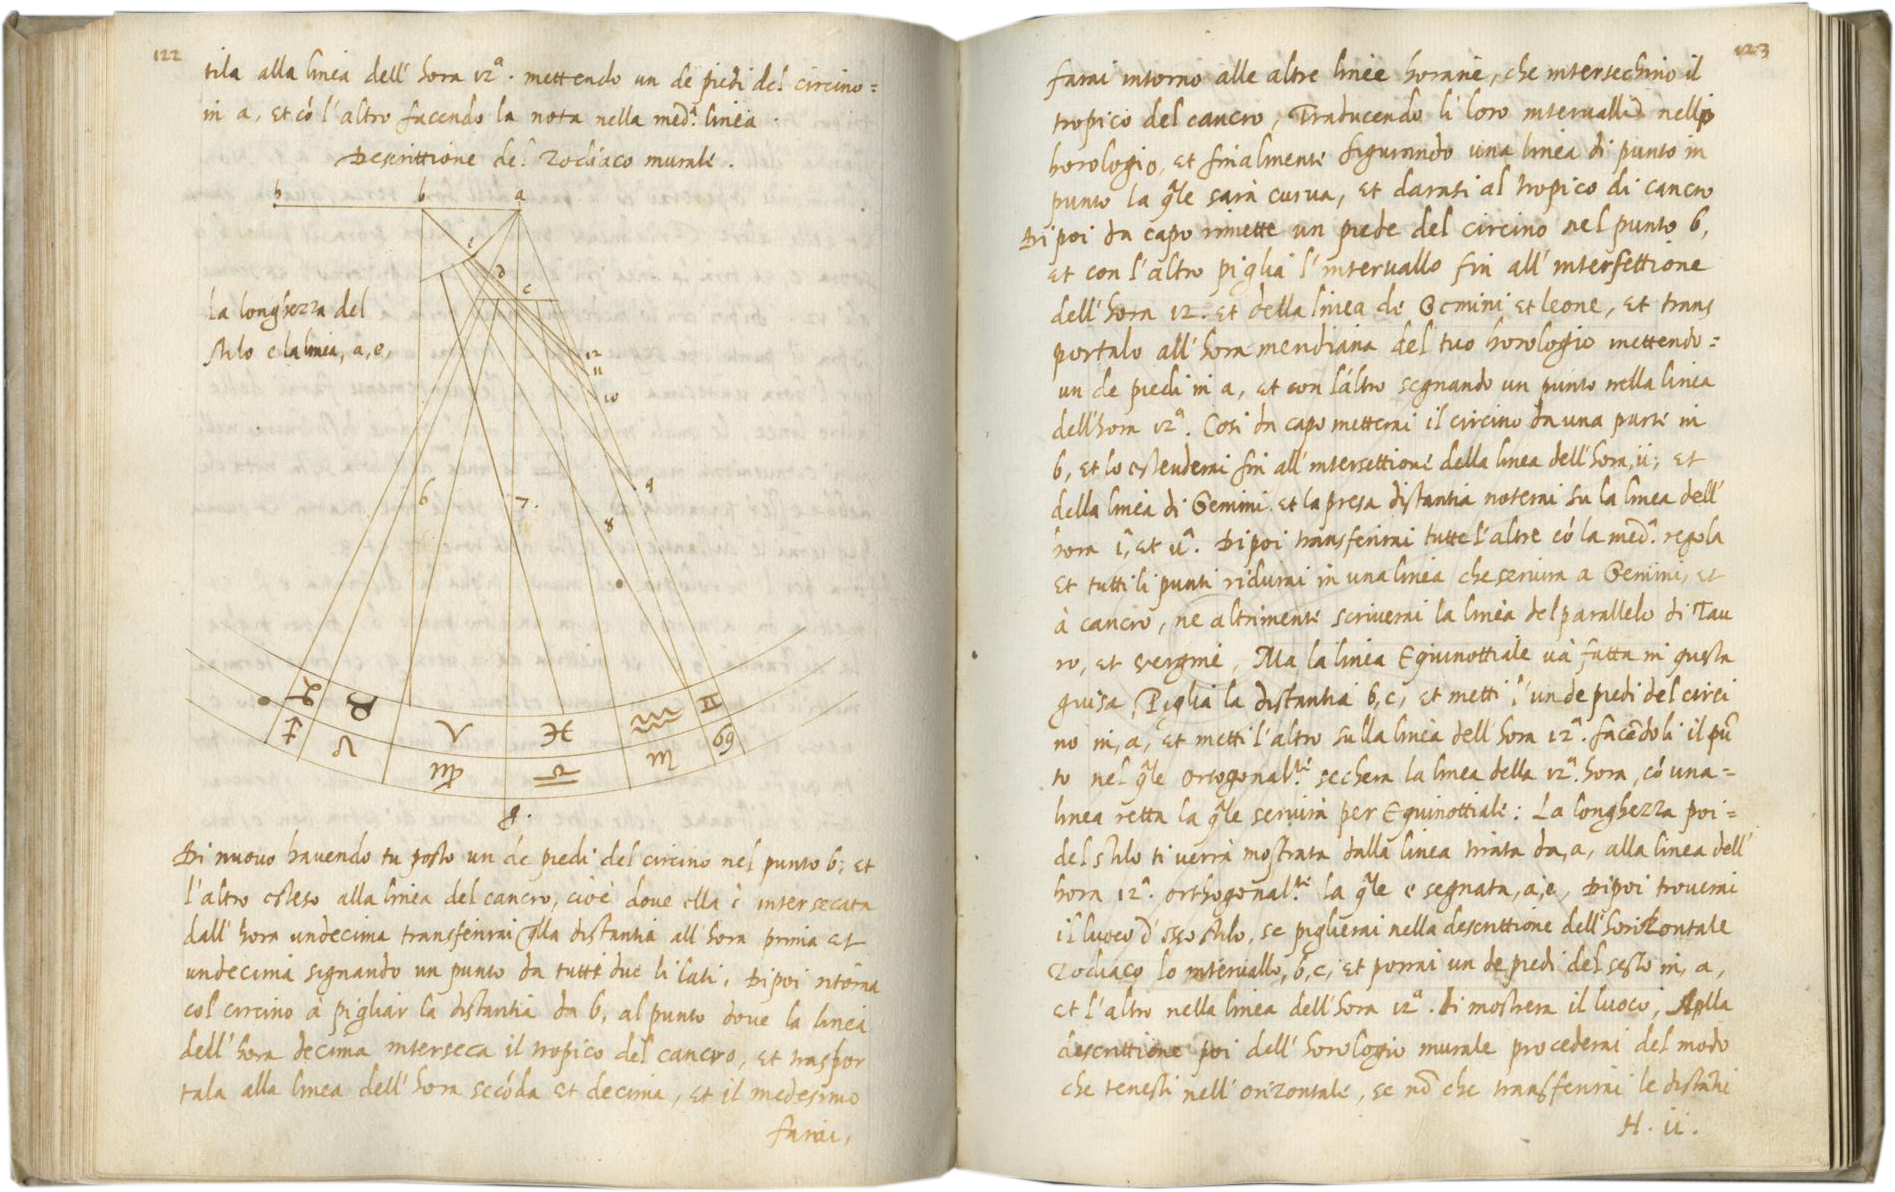 122
tila alla linea dell' hora 12ª. mettendo un de piedi del circino=
in a, et có l'altro facendo la nota nella medª. linea.
Descrittione del Zodiaco murale.
h b a
i
d
c
La longhezza del
stilo e la linea, a, e,
12
11
10
9
6 7. 8
♑ ♉ ♈ ♓ ♒ ♊
♐ ♌ ♍ ♎ ♏ ♋
g.
Di nuovo havendo tu posto un de piedi del circino nel punto b, et
l'altro esteso alla linea del cancro, cioè dove ella è intersecata
dall' hora undecima transferirai q̃lla distantia all' hora prima et
undecima signando un punto da tutti due li lati, Dipoi ritorna
col circino à pigliar la distantia da b, al punto dove la linea
dell' hora decima interseca il tropico del cancro, et traspor
tala alla linea dell' hora secóda et decima, et il medesimo
farai,
123
farai intorno alle altre linee horarie, che intersechino il
tropico del cancro, Traducendo li loro intervalli nello
horologio, et finalmente figurando una linea di punto in
punto la q̃le sarà curva, et darasi al tropico di cancro
Di poi da capo rimette un piede del circino nel punto b,
et con l'altro piglia l'intervallo fin all' intersettione
dell' hora 12. et della linea de Gemini et leone, et trans
portalo all' hora meridiana del tuo horologio mettendo=
un de piedi in a, et con l'altro segnando un punto nella linea
dell' hora 12ª. Cosi da capo metterai il circino da una parte in
b, et lo estenderai fin all' intersettione della linea dell' hora, ii; et
della linea di Gemini. et la presa distantia noterai su la linea dell'
hora iª, et iiª. Dipoi transferirai tutte l'altre có la medª. regola
et tutti li punti ridurai in una linea che servira a Gemini, et
à cancro, ne altrimente scriverai la linea del parallelo di Tau
ro, et vergine, Ma la linea Equinottiale và fatta in questa
guisa, Piglia la distantia b, c, et metti l'un de piedi del circi
no in, a, et metti l'altro sulla linea dell' hora 12ª. facẽdoli il pũ
to nel q̃le ortogonal.te sechera la linea della 12ª. hora, có una=
linea retta la q̃le servirà per Equinottiale: La longhezza poi=
del stilo ti verrà mostrata dalla linea tirata da, a, alla linea dell'
hora 12ª. orthogonal.te la q̃le e segnata, a, e, Dipoi troverai
il luoco d'esso stilo, se piglierai nella descrittione dell' horizontale
Zodiaco lo intervallo, b, c, et porrai un de piedi del sesto in, a,
et l'altro nella linea dell' hora 12ª. ti mostrera il luoco, Nella
descrittione poi dell' horologio murale procederai del modo
che tenesti nell' orizontale, se nõ che transferirai le distãtie
H. ii.